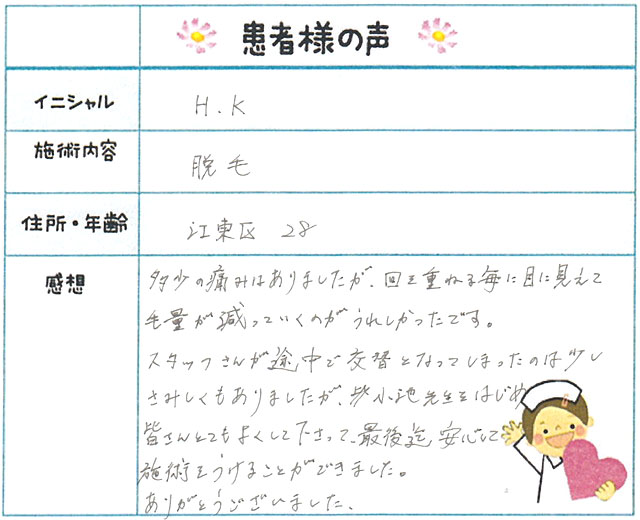 患者様の声
イニシャル H.K
施術内容 脱毛
住所・年齢 江東区 28
感想
多少の痛みはありましたが、回を重ねる毎に目に見えて
毛量が減っていくのがうれしかったです。
スタッフさんが途中で交替となってしまったのは少し
さみしくもありましたが、小池先生をはじめ
皆さんとてもよくして下さって、最後迄安心して
施術をうけることができました。
ありがとうございました、